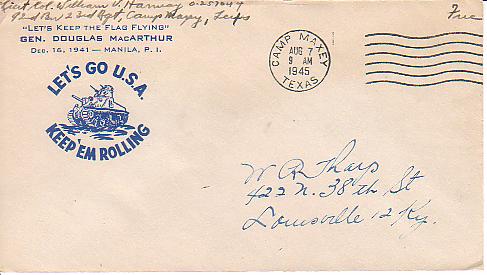 Lieut. Col. William V. Harvey O-257047
92d Bn 23d Rgt, Camp Maxey, Texas
Free
"LET'S KEEP THE FLAG FLYING"
GEN. DOUGLAS MACARTHUR
DEC. 16, 1941 — MANILA, P. I.
LET'S GO U.S.A.
KEEP 'EM ROLLING
CAMP MAXEY
AUG 7
9 AM
1945
TEXAS
W R Tharp
422 N. 38th St
Louisville 12 Ky.